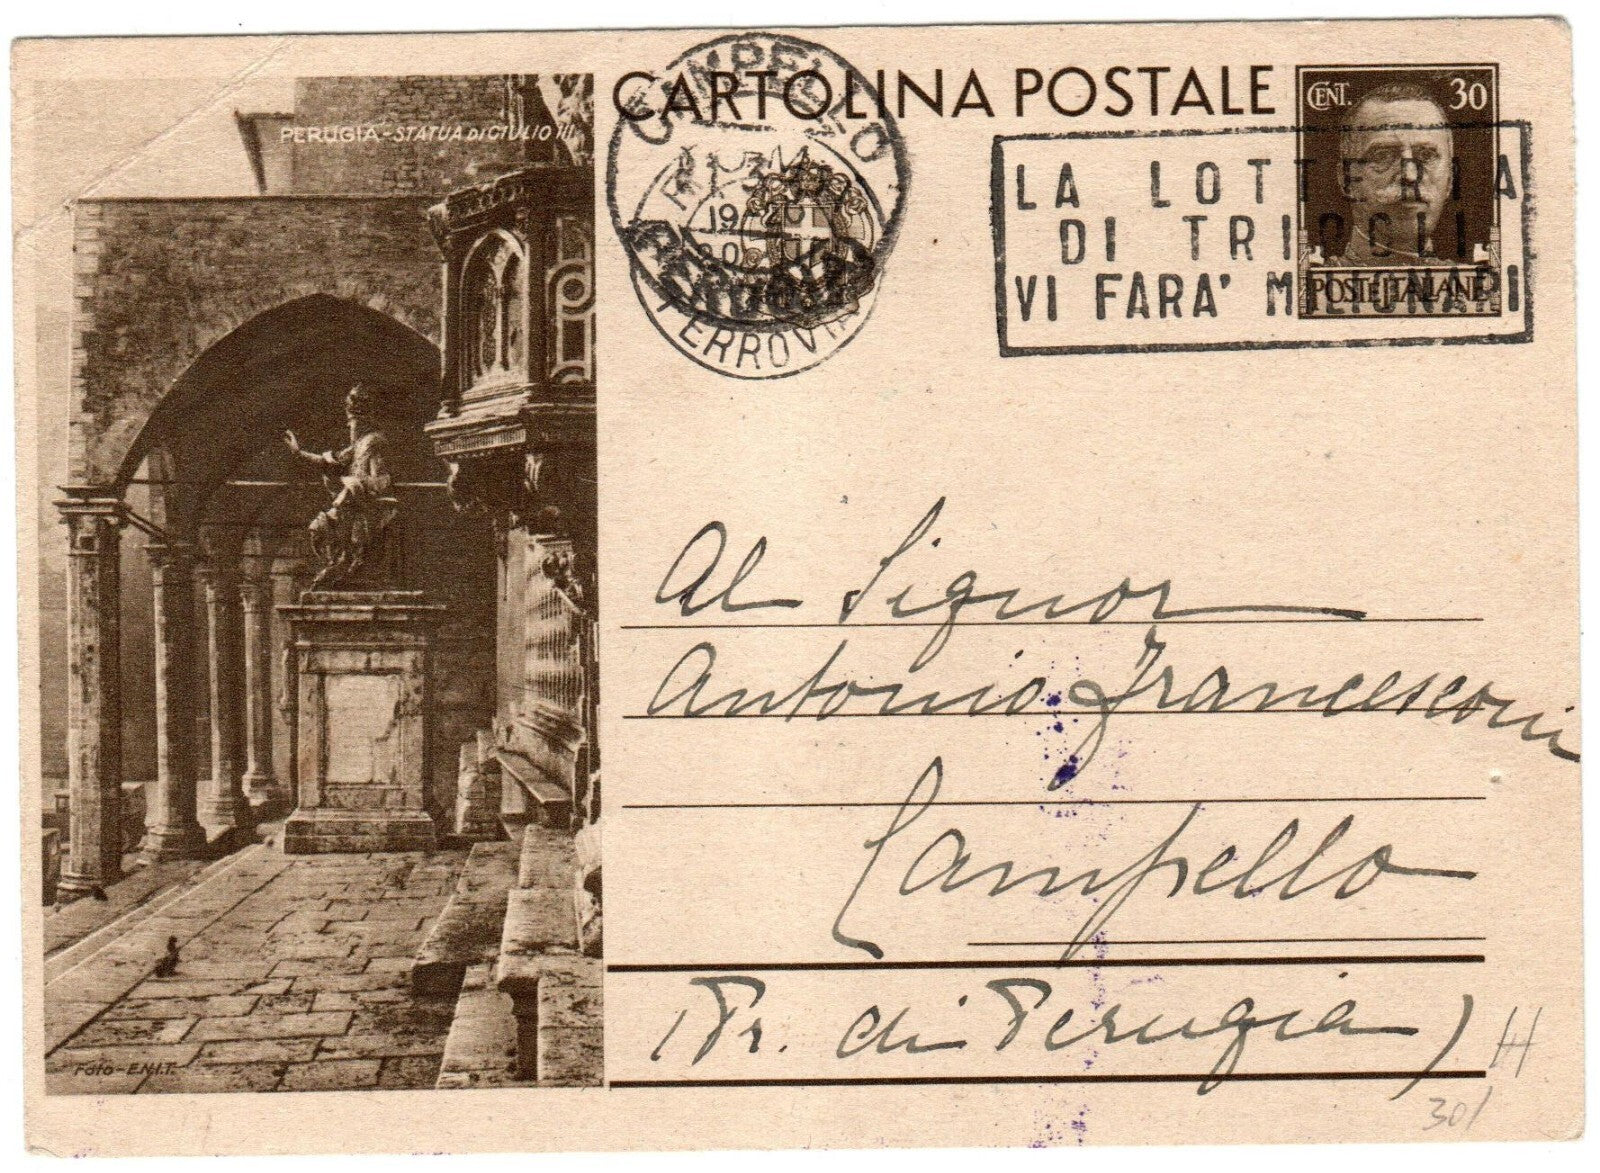 PERUGIA - STATUA DI GIULIO III.
CARTOLINA POSTALE
CENT. 30
POSTE ITALIANE
CAMPELLO
PERUGIA
ROMA
19
FERROVIA
LA LOTTERIA
DI TRIPOLI
VI FARA' MILIONARI
Al Signor
Antonio Francesconi
Campello
(Pr. di Perugia)
Foto - E.N.I.T.
30/